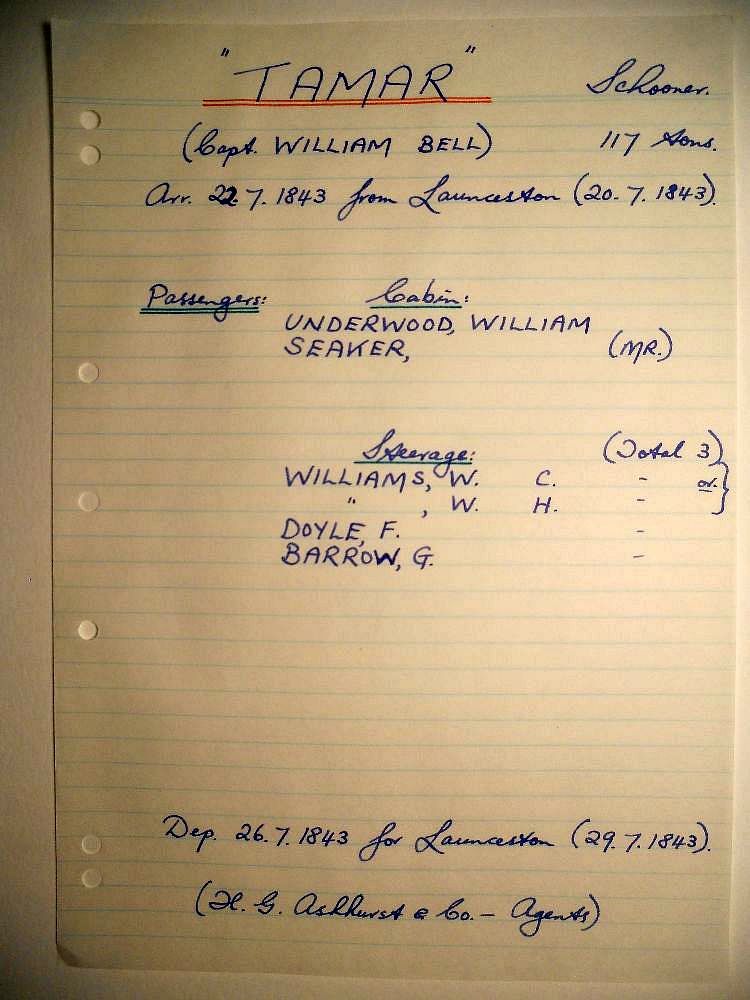 "TAMAR" Schooner.
(Capt. WILLIAM BELL) 117 tons.
Arr. 22.7.1843 from Launceston (20.7.1843).
Passengers: Cabin:
UNDERWOOD, WILLIAM
SEAKER, (MR.)
Steerage: (Total 3)
WILLIAMS, W. C. - or }
" , W. H. -
DOYLE, F. -
BARROW, G. -
Dep. 26.7.1843 for Launceston (29.7.1843).
(H. G. Ashhurst & Co. - Agents)